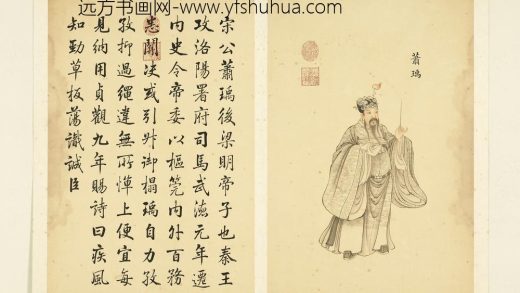 远方书画网-www.yfshuhua.com
蕭瑀
宋公蕭瑀後梁明帝子也秦王
攻洛陽署府司馬武德元年遷
内史令帝委以樞筦内外百務
悉關决或引升御榻瑀自力孜
孜抑過繩違無所憚上便宜每
見納用貞觀九年賜詩曰疾風
知勁草板蕩識誠臣